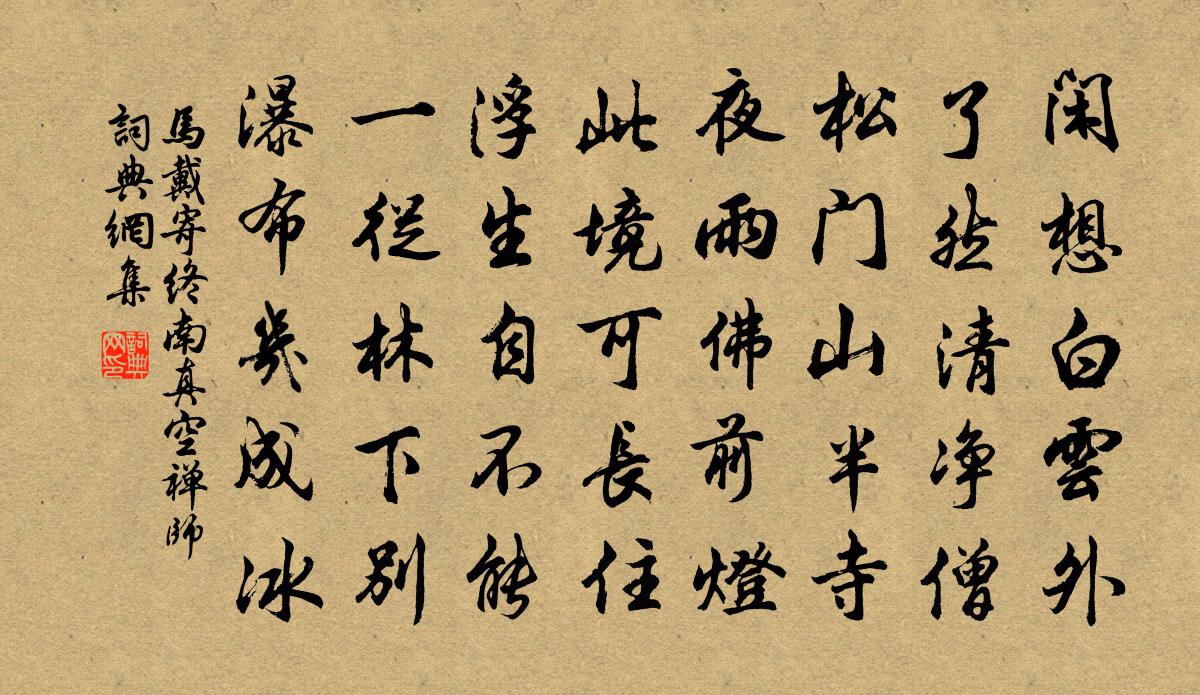 闲想白雲外
了然清净僧
松门山半寺
夜雨佛前燈
此境可長住
浮生自不能
一從林下别
瀑布幾成冰
馬戴寄终南真空禅師
詞典網集
詞典网印